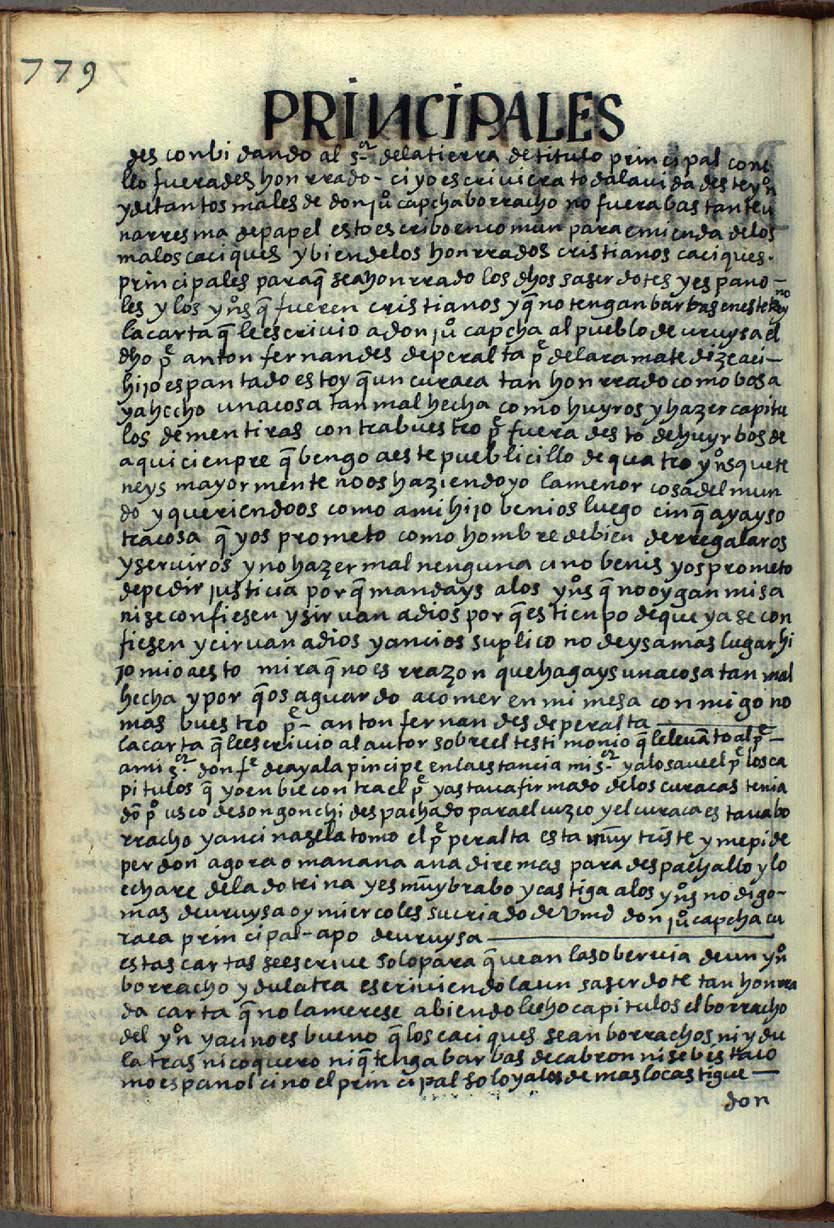 779
PRINCIPALES
des conbidando al s.or de la tierra de titulo prinsipal con el
lo fuera deshonrrado - ci yo escriviera toda la vida deste yn.o
y de tantos males de don ju.o capcha borracho no fuera bastante u
na rresma de papel esto escribo en comun para emienda de los
malos caciques y bien de los honrrados cristianos caciques.
prinsipales para q̃ sea honrrado los dhos saserdotes y espano-
les y los yn.os q̃ fueren cristianos y q̃ no tengan barbas en este rrey
no
la carta q̃ le escrivio a don ju.o capcha al pueblo de uruysa el
dho p.e anton fernandes de peralta p.e de laramate dize aci-
hijo espantado estoy q̃ un curaca tan honrrado como bosa
ya hecho una cosa tan mal hecha como huyros y hazer capitu
los de mentiras contra buestro p.e fuera desto de huyrbos de
aqui cienpre q̃ bengo a este pueblicillo de quatro yn.os que te
neys mayormente no os haziendo yo la menor cosa del mun
do y queriendoos como a mi hijo benios luego cin q̃ ayays o
tra cosa q̃ yos prometo como hombre de bien de rregalaros
y serviros y no hazer mal nenguna cino benis yos prometo
de pedir justicia por q̃ mandays a los yn.os q̃ no oygan misa
ni se confiesen y sirvan a dios por q̃ es tienpo de que ya se con
fiesen y cirvan a dios y anci os suplico no deys a mas lugar hi
jo mio a esto mira q̃ no es rrazon que hagays una cosa tan mal
hecha y por q̃ os aguardo a comer en mi mesa conmigo no
mas buestro p.e - anton fernandes de peralta
la carta q̃ le escrivio al autor sobre el testimonio q̃ le levanto al p.e-
a mi s.or don f.e de ayala pincipe en la estancia mi s.or ya lo save el p.e los ca
pitulos q̃ yo enbie contra el p.e ya stava firmado de los curacas tenia
don p.o usco de songonchi despachado para el cuzco y el curaca estava bo
rracho y anci na se la tomo el p.e peralta esta muy triste y me pide
perdon agora o manana anadire mas para despachallo y lo
echare de la dotrina y es muy brabo y castiga a los yn.os no digo-
mas de uruysa oy miercoles su criado de Vmd don ju.o capcha cu
raca prinsipal - apo de uruysa
estas cartas se escrive solo para q̃ vean la sobervia de un yn.o
borracho y dulatra escriviendola un saserdote tan honrra
da carta q̃ no la merese abiendo hecho capitulos el borracho
del yn.o y aci no es bueno q̃ los caciques sean borrachos ni ydu
latras ni coquero ni q̃ tenga barbas de cabron ni se bista co
mo espanol cino el prinsipal solo y a los demas los castigue
don